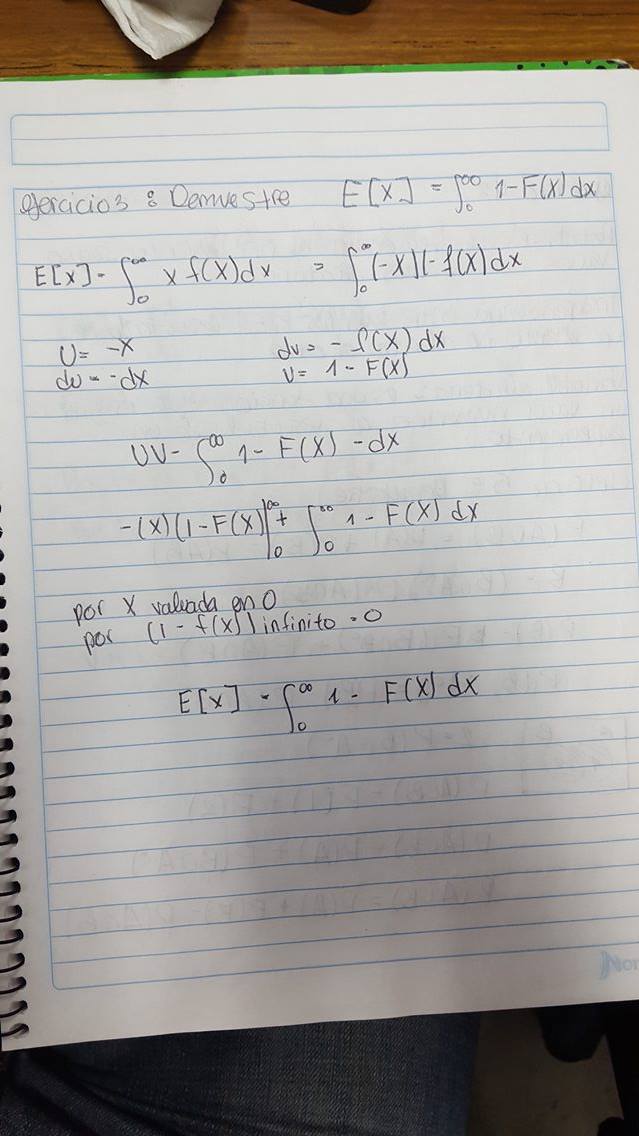 ejercicio 3 : Demuestre E[X] = ∫₀^∞ 1-F(X)dx
E[x] = ∫₀^∞ x f(x)dx = ∫₀^∞ (-x)(-f(x)dx
U= -x dv= - f(x) dx
du = -dx v= 1-F(x)
UV- ∫₀^∞ 1- F(x) -dx
-(x)(1-F(x)|₀^∞ + ∫₀^∞ 1- F(x) dx
por X valuada en 0
por (1-f(x)) infinito = 0
E[x] = ∫₀^∞ 1- F(x) dx
Nor